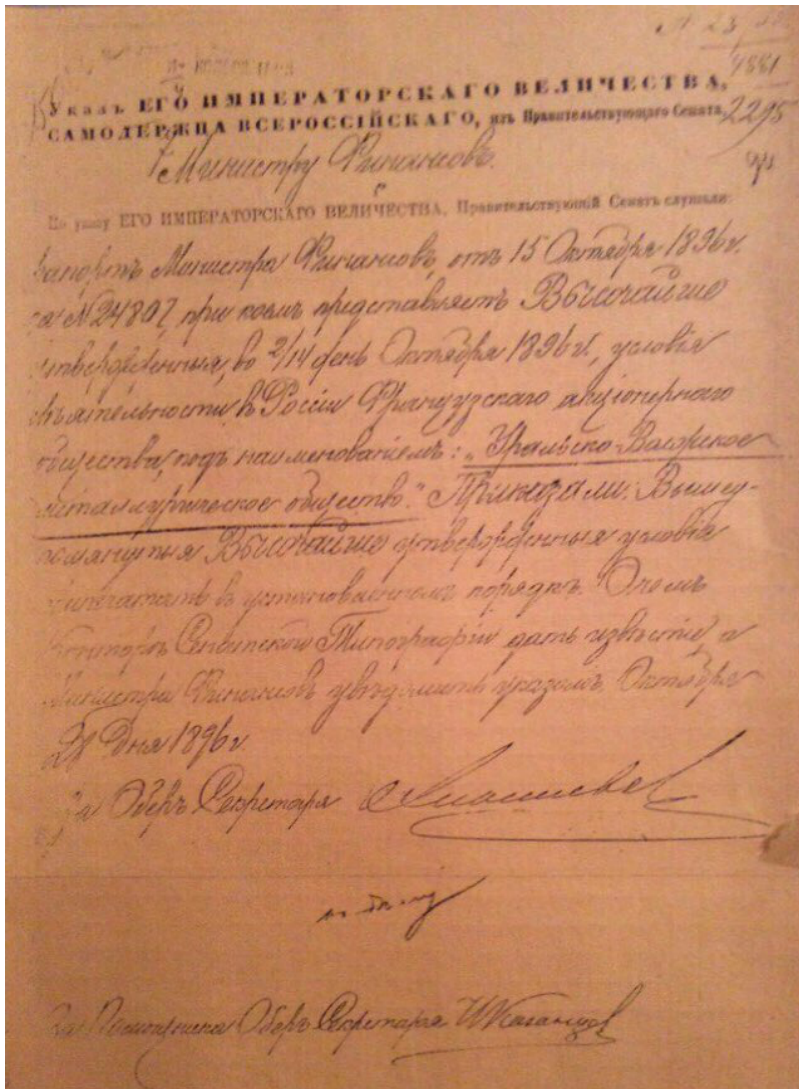 № 23
4881
Указъ ЕГО ИМПЕРАТОРСКАГО ВЕЛИЧЕСТВА,
САМОДЕРЖЦА ВСЕРОССІЙСКАГО, изъ Правительствующаго Сената,
2295
Министру Финансовъ.
По указу ЕГО ИМПЕРАТОРСКАГО ВЕЛИЧЕСТВА, Правительствующій Сенатъ слушали:
рапортъ Министра Финансовъ, отъ 15 Октября 1896 г.
за № 24807, при коемъ представляетъ Высочайше
утвержденныя, во 2/14 день Октября 1896 г., условія
дѣятельности въ Россіи Французскаго акціонернаго
общества, подъ наименованіемъ: „Уральско-Волжское
металлургическое общество." Приказали: Вышеу-
помянутыя Высочайше утвержденныя условія
припечатать въ установленномъ порядкѣ. О чемъ
Конторѣ Сенатской Типографіи дать извѣстіе, а
Министра Финансовъ увѣдомить указомъ. Октября
28 дня 1896 г.
За Оберъ Секретаря
За Помощника Оберъ Секретаря